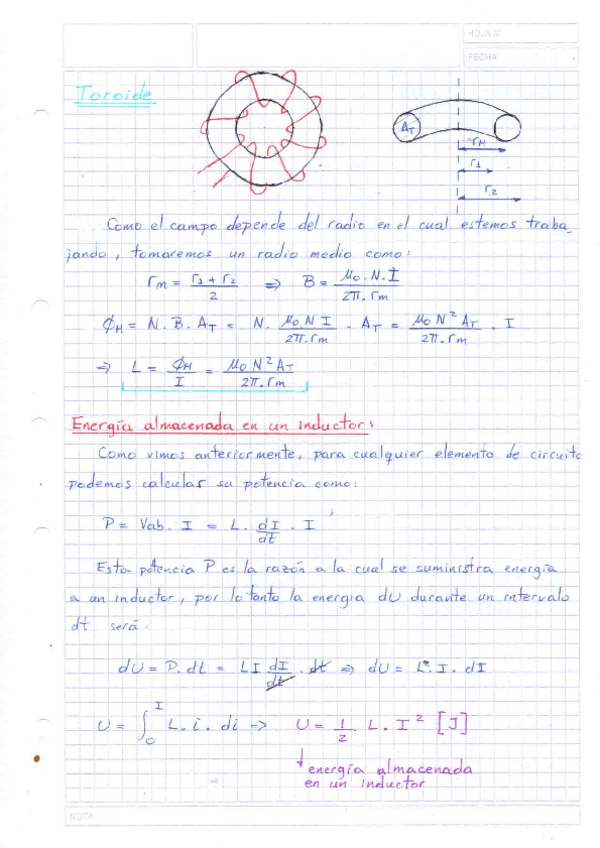 HOJA N°
FECHA
Toroide
A_T
r_M
r_1
r_2
Como el campo depende del radio en el cual estemos traba_
jando, tomaremos un radio medio como:
r_m = (r_1 + r_2)/2 => B = (μ_0. N. I)/(2π. r_m)
Φ_M = N. B. A_T = N. (μ_0 N I)/(2π. r_m) . A_T = (μ_0 N² A_T)/(2π. r_m) . I
=> L = Φ_M/I = (μ_0 N² A_T)/(2π. r_m)
Energía almacenada en un inductor:
Como vimos anteriormente, para cualquier elemento de circuito
podemos calcular su potencia como:
P = Vab. I = L. dI/dt . I
Esta potencia P es la razón a la cual se suministra energía
a un inductor, por lo tanto la energía dU durante un intervalo
dt será.
dU = P. dt = L I dI/dt . dt => dU = L. I. dI
U = ∫_0^I L. i. di => U = 1/2 L. I² [J]
energía almacenada
en un inductor
NOTA